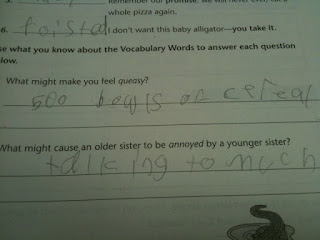 Remember our promise: We will never
whole pizza again.
6. foistad I don't want this baby alligator—you take it.
se what you know about the Vocabulary Words to answer each question
low.
What might make you feel queasy?
500 bowls of cereal
What might cause an older sister to be annoyed by a younger sister?
talking to much